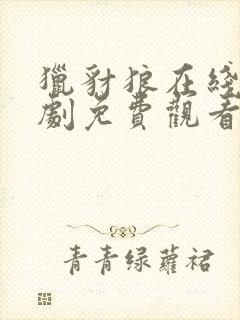 獵豺狼在綫
劇免費觀看
青青绿蘿裙